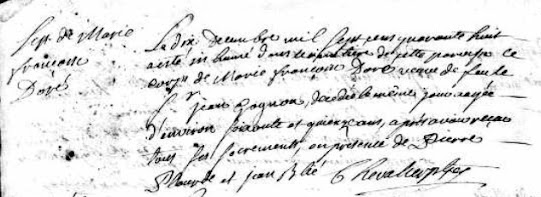 Sep. de Marie
françoise
Doré
Le dix decembre mil sept cens quarante huit
a esté inhumé dans le cimetiere de cette paroisse le
corps de Marie françoise Doré veuve de feu
Sr jean Gagnon, decedée le même jour agée
d'environ soixante et quinze ans, après avoir reçue
tous ses sacrements, en présence de Pierre
et jean